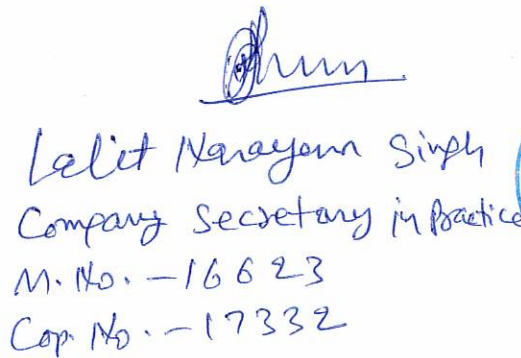 Lalit Narayan Singh
Company Secretary in Practice
M. No. - 16623
Cop. No. - 17332